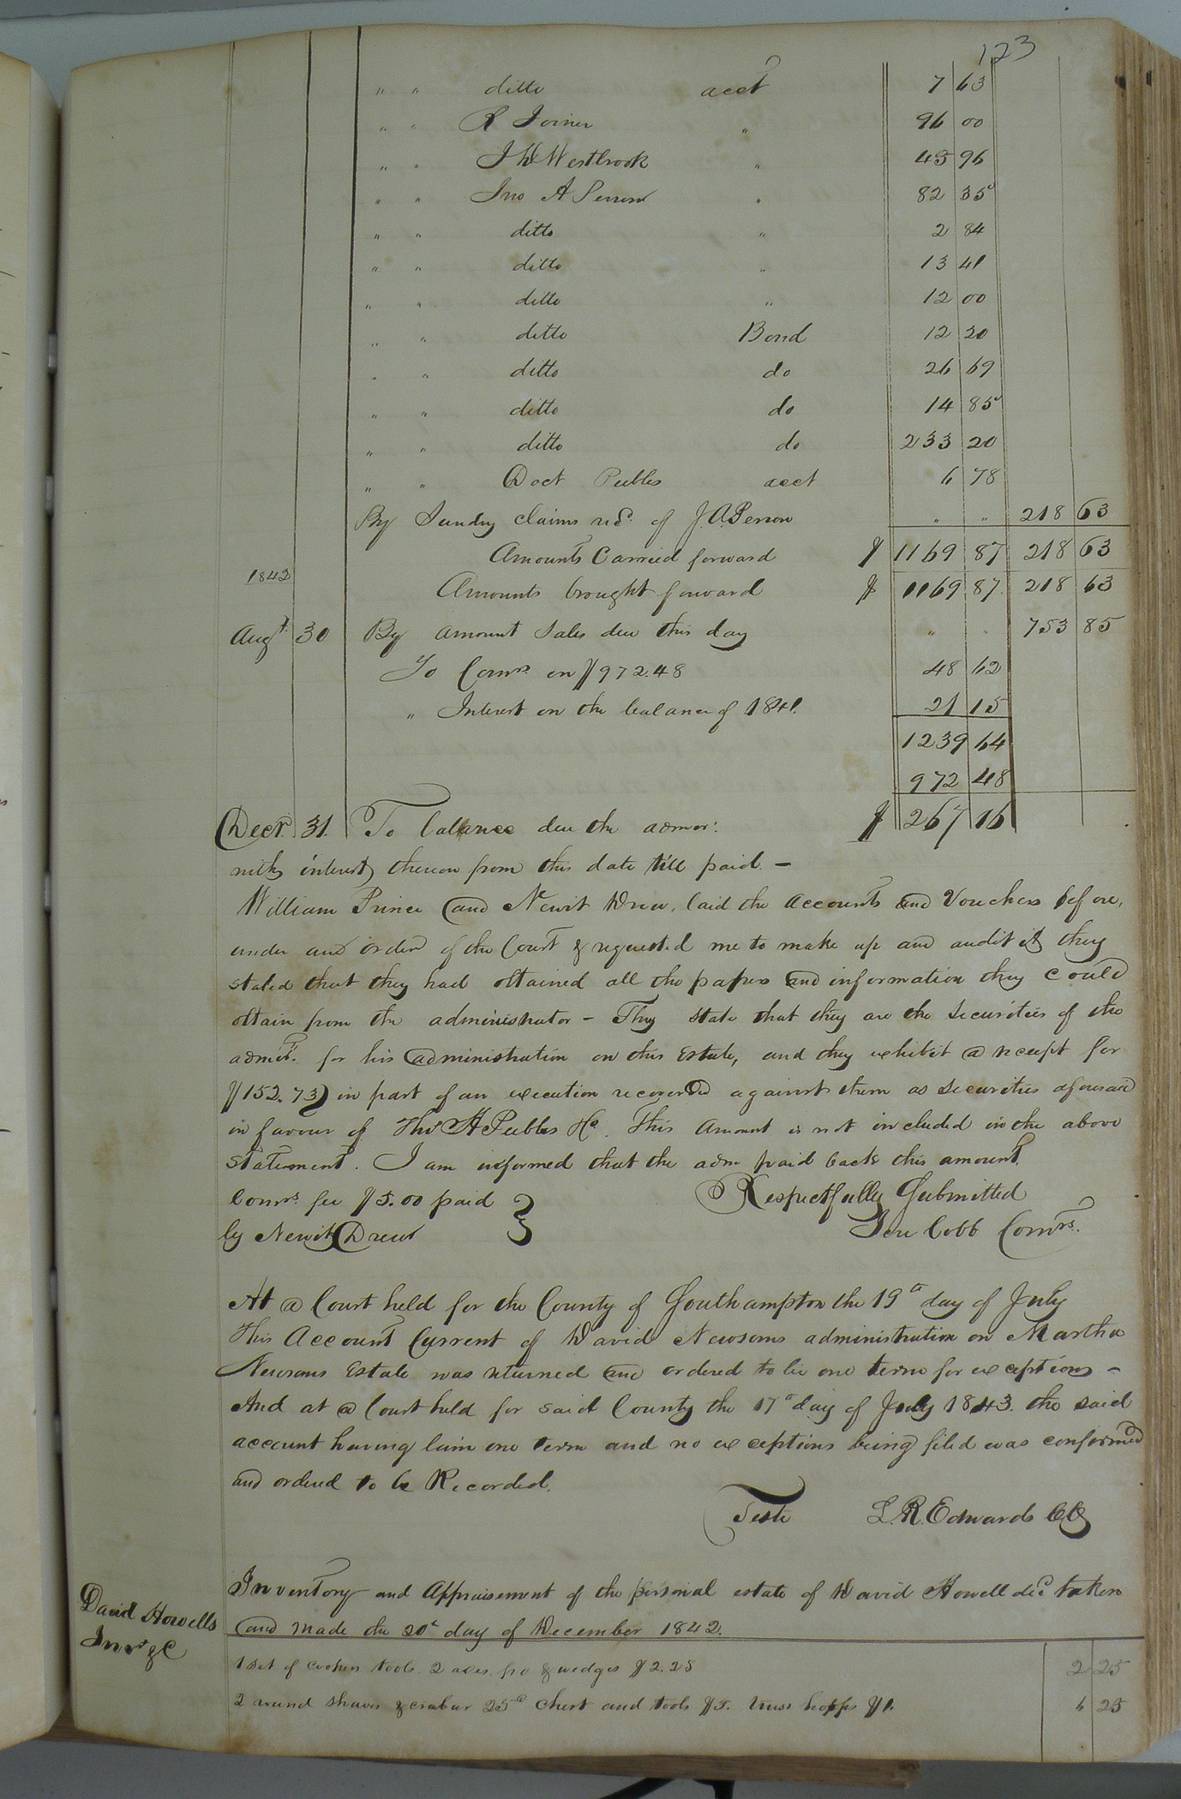 123
" " ditto acct 7 63
" " R Joiner " 96 00
" " J W Westbrook " 45 96
" " Jno A Person " 82 35
" " ditto " 2 84
" " ditto " 13 41
" " ditto " 12 00
" " ditto Bond 12 20
" " ditto do 26 69
" " ditto do 14 85
" " ditto do 233 20
" " Doct Peebles acct 6 78
By Sundry claims recd. of J. A. Person " " 218 63
Amounts Carried forward $ 1169 87 218 63
1842 Amounts brought forward $ 1169 87 218 63
Augt. 30 By amount Sales due this day " " 753 85
To Comrs on $972.48 48 62
" Interest on the balance of 1841. 21 15
1239 64
972 48
Decr. 31. To balance due the admor: $ 267 16
with interest thereon from this date till paid. –
William Prince and Newit Drew, laid the accounts and Vouchers before,
under and order of the Court & requested me to make up and audit it they
stated that they had obtained all the papers and information they could
obtain from the administrator – They state that they are the Securities of the
admor. for his administration on this Estate, and they exhibit a receipt for
$152.73 in part of an execution recovered against them as Securities aforesaid
in favour of Thos H Peebles &c. This Amount is not included in the above
Statement. I am informed that the adm paid back this amount.
Comrs. fee $5.00 paid } Respectfully Submitted
by Newit Drew Jere Cobb Comrs.
At a Court held for the County of Southampton the 19th day of July
This Account Current of David Newsoms administration on Martha
Newsoms Estate was returned and ordered to lie one term for exceptions –
And at a Court held for said County the 17th day of July 1843. the said
account having laim one term and no exceptions being filed was conformed
and ordered to be Recorded.
Teste L. R. Edwards CC
David Howells
Invt &C
Inventory and Appraisement of the personal estate of David Howell decd. taken
and made the 20th day of December 1842.
1 Set of coopers tools. 2 axes, fro & wedges $2.25 2 25
2 round shaves & 25c Chest and tools $5. truss hoops $1. 6 25